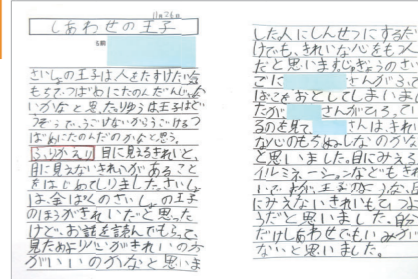 11月26日
しあわせの王子
名前
さいしょの王子は人をたすけたい気
もちで、つばめにたのんだんじゃな
いかなと思ったりゆうは王子はど
うぞうで、うごけないからうごけるつ
ばめにたのんだのかなと思う。
ふりかえり 目に見えるきれいと、
目に見えないきれいがあること
をはじめてしりました。さいしょ
は、金ぱくのさいしょの王子
のほうがきれいだと思った
けど、お話を読んでもらって、
見ためより心がきれいの方
がいいのかなと思いま
した。人にしんせつにするだ
けでも、きれいな心をもつ
だと思います。じゅぎょうのさい
ごに さんがふで
ばこをおとしてしまいま
たが さんがひろって
るのを見て さんは、きれい
な心のもちぬしなのかな
と思いました。目にみえる
イルミネーションなどもきれ
いですが、王子のような、目
にみえないきれいもいつよ
うだと思いました。自分
だけしあわせでもいみが
ないと思いました。